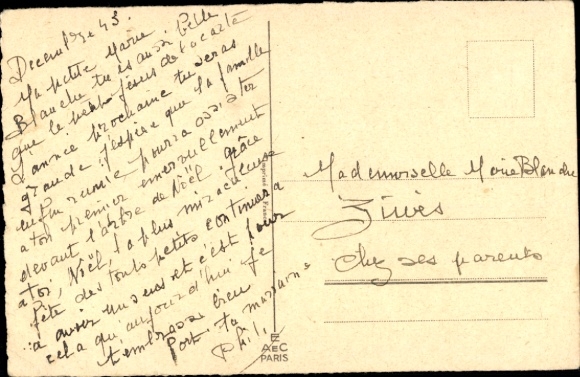 Decembre 43.
Ma petite Marie
Blanche tu es aussi belle
que le petit Jésus de la carte
L'année prochaine tu seras
grande j'espère que la famille
enfin réunie pourra assister
à ton premier émerveillement
devant l'arbre de Noël. Grâce
à toi, Noël, la plus miraculeuse
fête des touts petits continuera
à avoir un sens et c'est pour
cela qu'aujourd'hui je
t'embrasse bien
fort ta marraine
Mademoiselle Marie Blanche
Chez ses parents
Imprimé France
AEC
PARIS